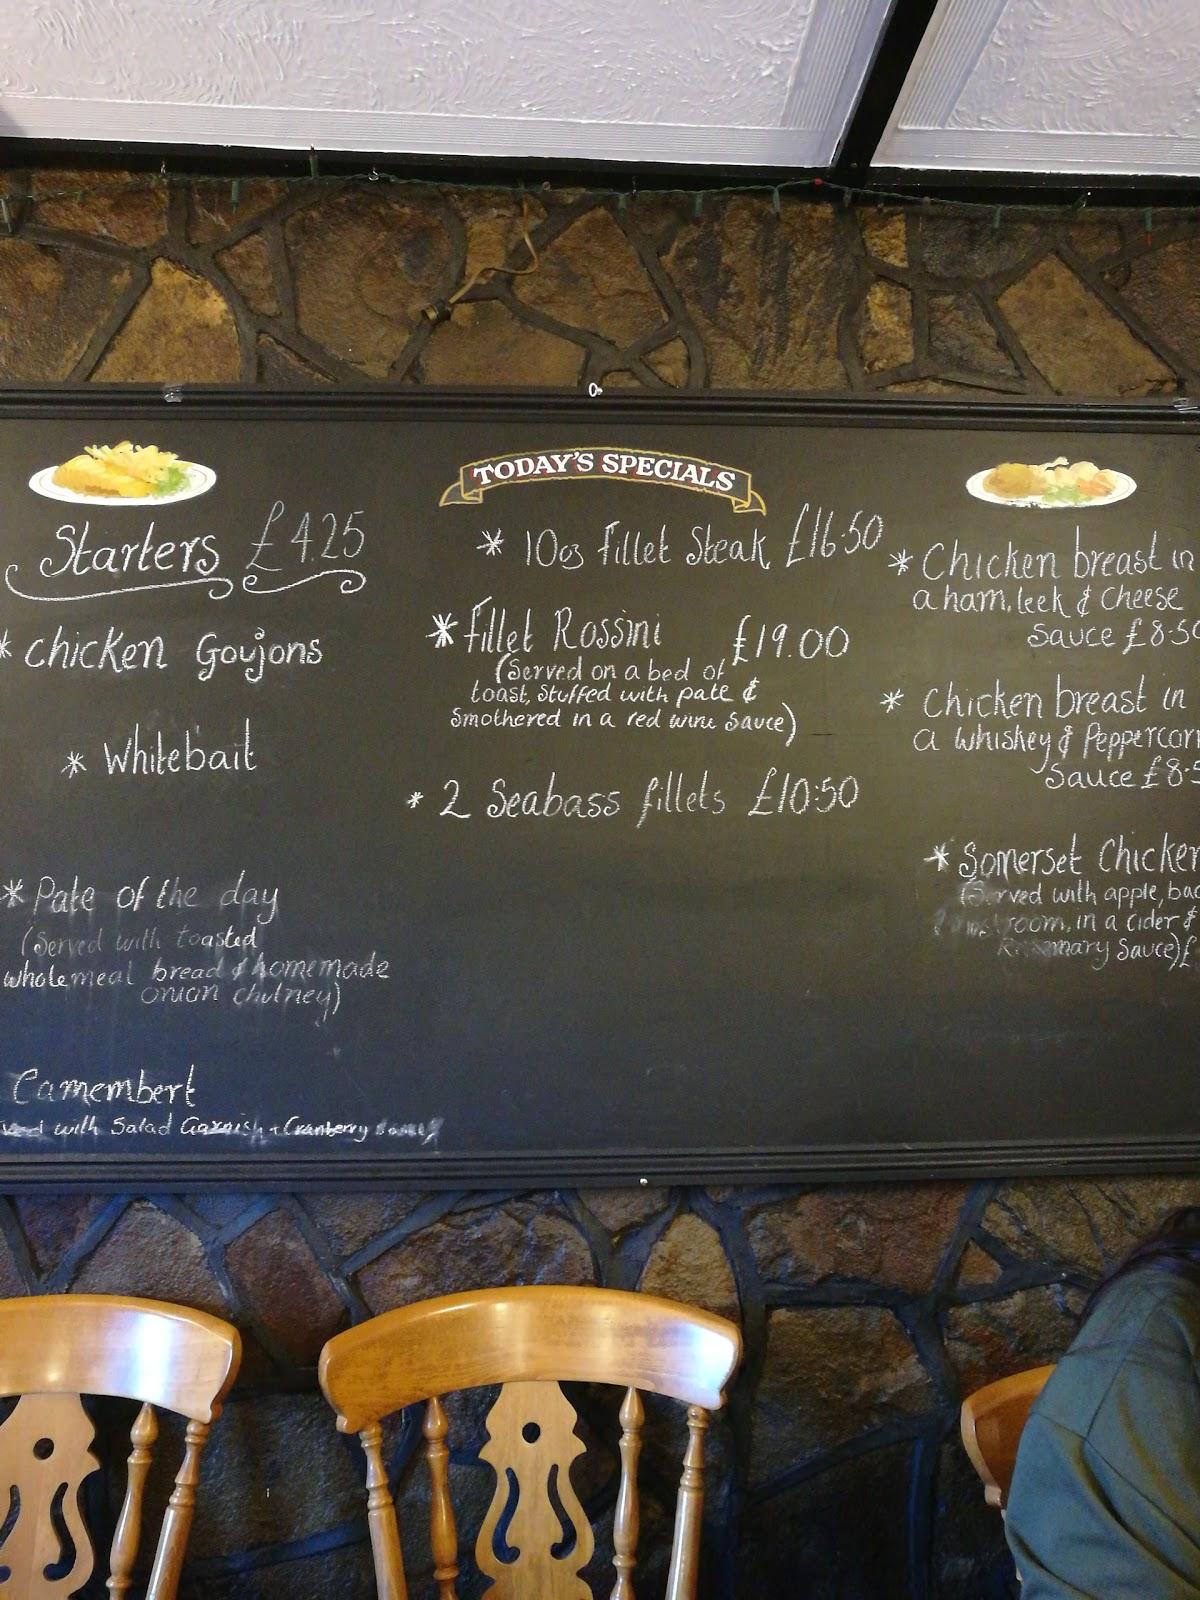 Starters £4.25
* Chicken Goujons
* Whitebait
* Pate of the day
(Served with toasted
wholemeal bread & homemade
onion chutney)
Camembert
with Salad Garnish + Cranberry Sauce
TODAY'S SPECIALS
* 10oz fillet Steak £16.50
* fillet Rossini £19.00
(Served on a bed of
toast, stuffed with pate &
Smothered in a red wine sauce)
* 2 Seabass fillets £10.50
* Chicken breast in
a ham, leek & Cheese
Sauce £8.50
* Chicken breast in
a Whiskey & Peppercorn
Sauce £8.5
* Somerset Chicken
(Served with apple,
in a cider &
Rosemary Sauce) £